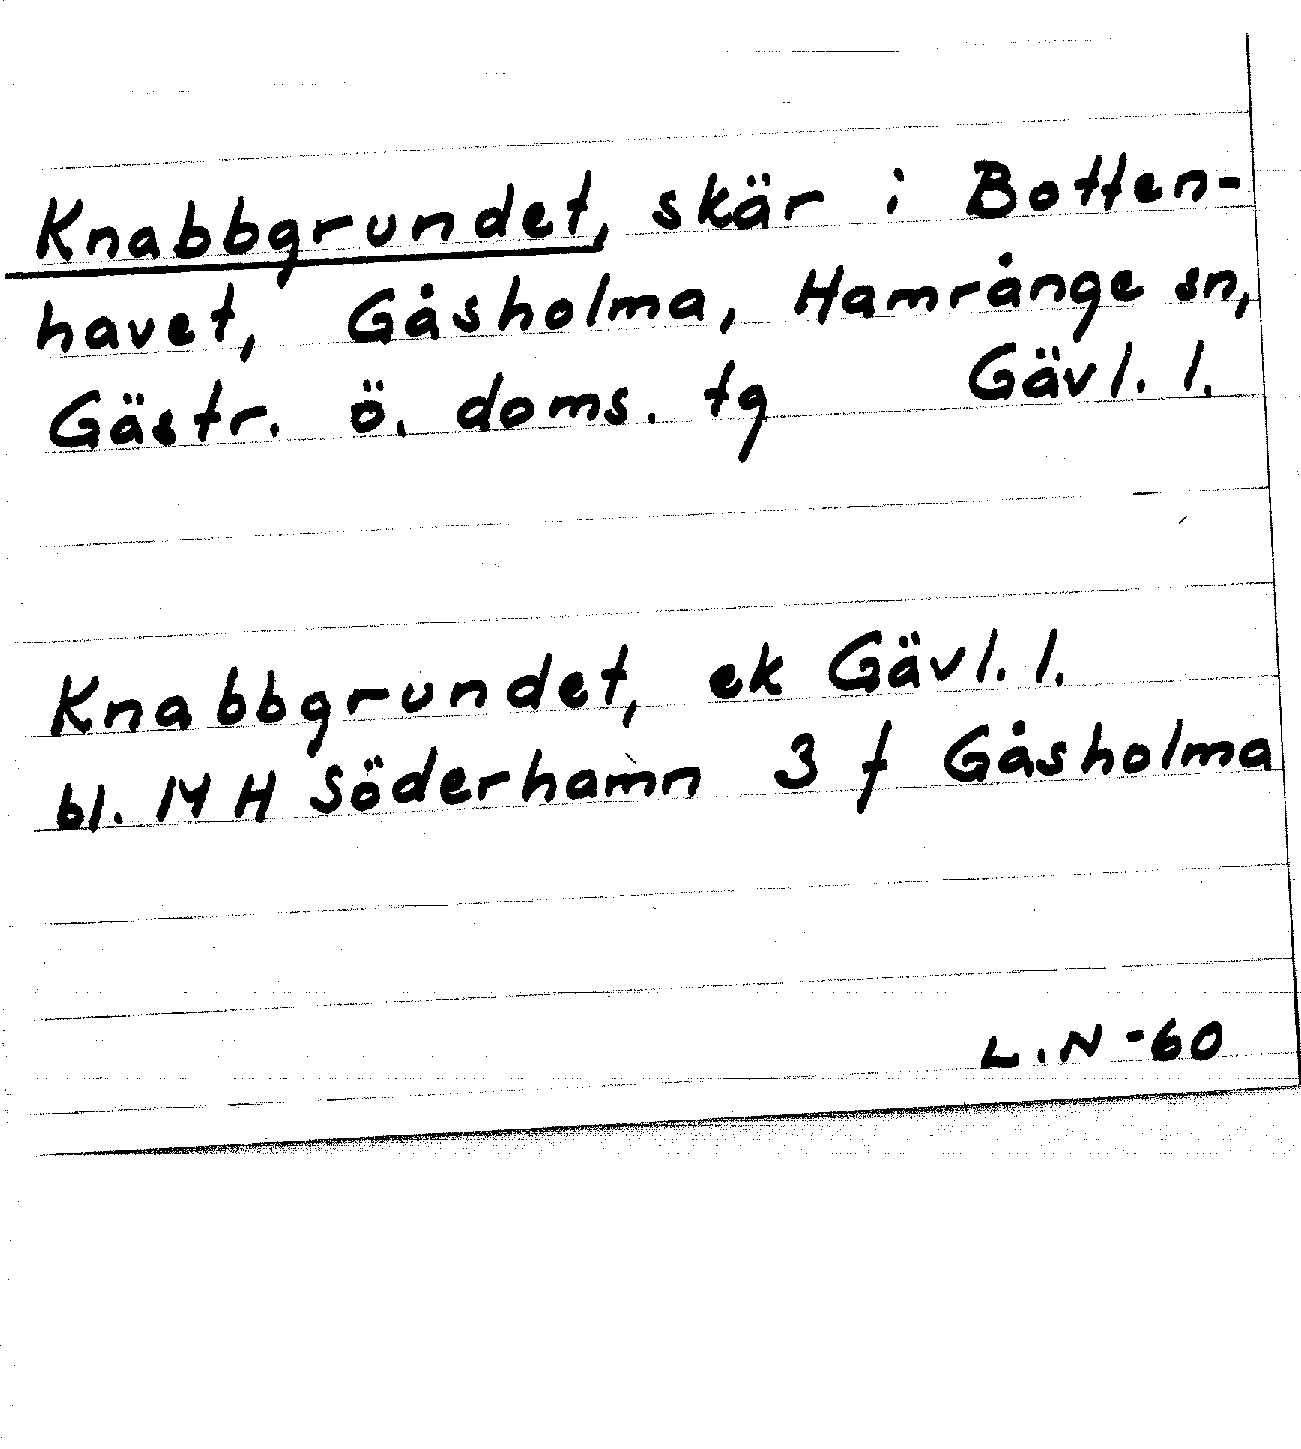 Knabbgrundet, skär i Botten-
havet, Gåsholma, Hamrånge sn,
Gästr. ö. doms. tg Gävl. l.
Knabbgrundet, ek Gävl. l.
bl. 14 H Söderhamn 3 f Gåsholma
L.N -60